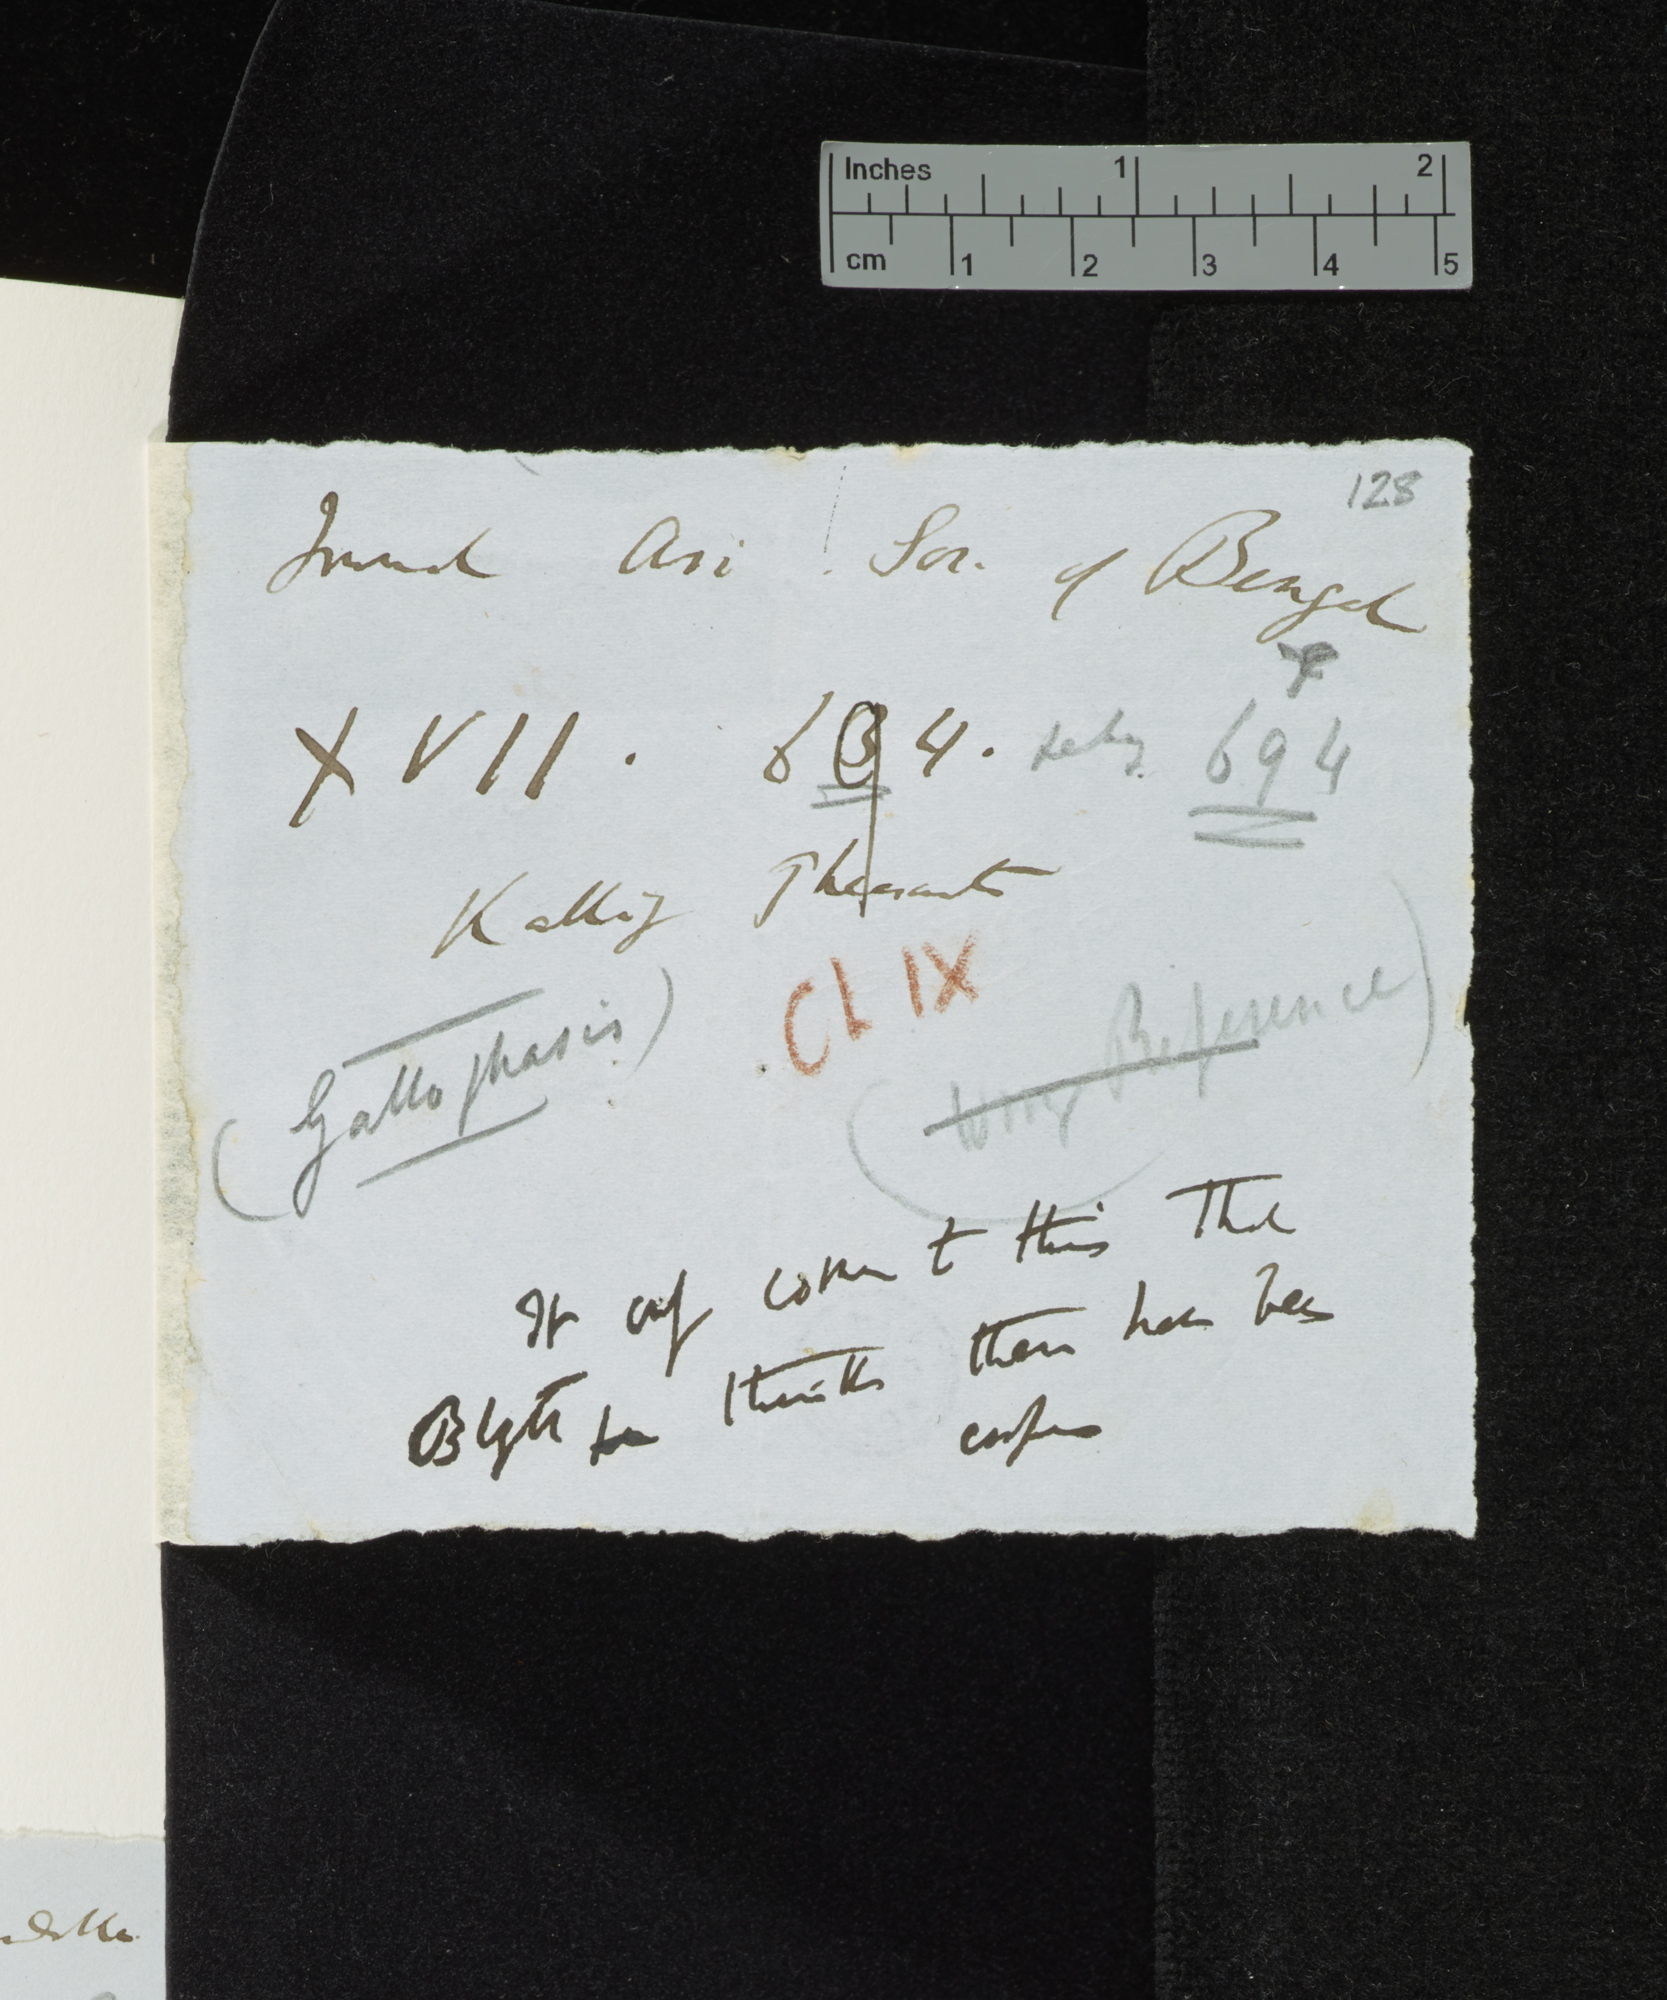 Inches 1 2
cm 1 2 3 4 5
128
Journal Asi Soc. of Bengal
XVII. 634. 694
Kallij Pheasants
CLIX
(Gallophasis)
(Wrong Reference)
It only comes to this that
Blyth thinks there has been